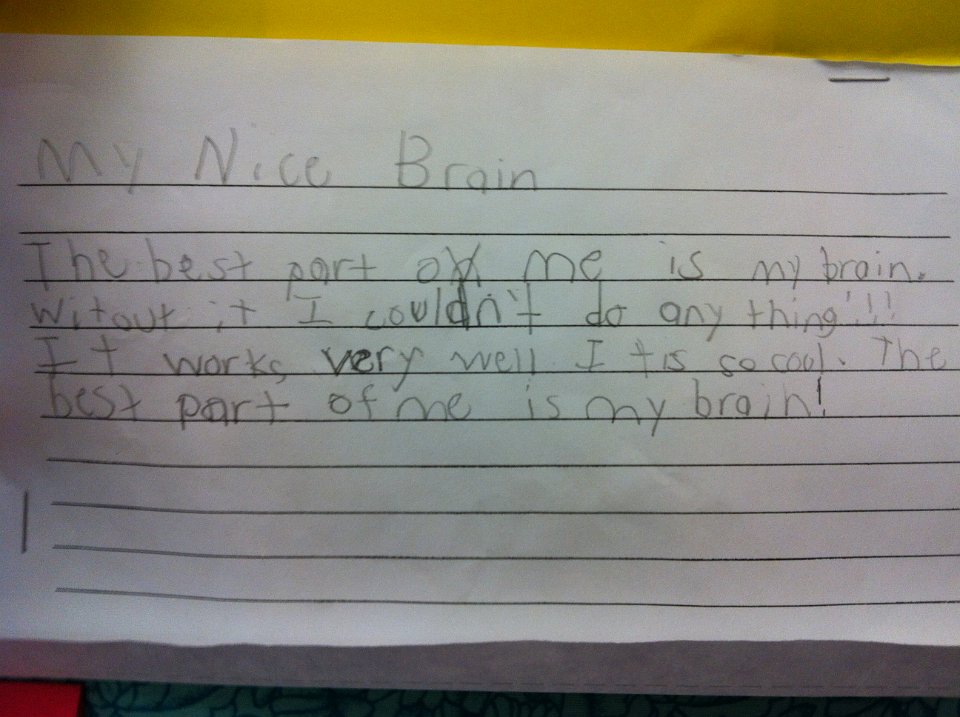 My Nice Brain
The best part of me is my brain.
Witout it I couldn't do any thing!!!
It works very well It is so cool. The
best part of me is my brain!